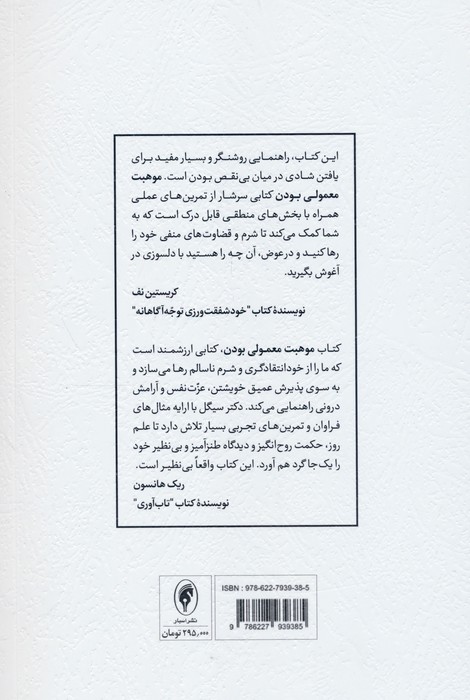 این کتاب، راهنمایی روشنگر و بسیار مفید برای
یافتن شادی در میان بی‌نقص بودن است. موهبت
معمولی بودن کتابی سرشار از تمرین‌های عملی
همراه با بخش‌های منطقی قابل درک است که به
شما کمک می‌کند تا شرم و قضاوت‌های منفی خود را
رها کنید و در عوض، آن چه را هستید با دلسوزی در
آغوش بگیرید.
کریستین نف
نویسندهٔ کتاب "خودشفقت‌ورزی توجّه‌آگاهانه"
کتاب موهبت معمولی بودن، کتابی ارزشمند است
که ما را از خودانتقادگری و شرم ناسالم رها می‌سازد و
به سوی پذیرش عمیق خویشتن، عزّت‌نفس و آرامش
درونی راهنمایی می‌کند. دکتر سیگل با ارایه مثال‌های
فراوان و تمرین‌های تجربی بسیار تلاش دارد تا علم
روز، حکمت روح‌انگیز و دیدگاه طنزآمیز و بی‌نظیر خود
را یک‌جا گرد هم آورد. این کتاب واقعاً بی‌نظیر است.
ریک هانسون
نویسندهٔ کتاب "تاب‌آوری"
نشر اسبار
۲۹۵,۰۰۰ تومان
ISBN : 978-622-7939-38-5
9 786227 939385